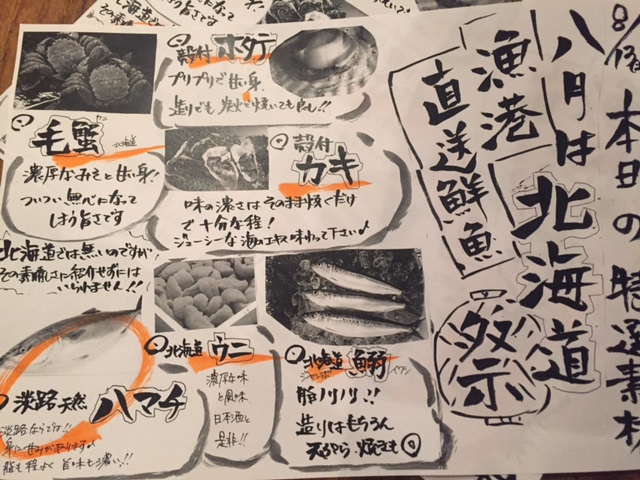 本日の特選素材
八月は北海道
漁港
直送鮮魚
祭
殻付 ホタテ
プリプリで甘い身
造りでも炭火で焼いても良し!!
毛蟹
北海道
濃厚なみそと甘い身!
ついつい無心になって
しまう旨さです
殻付
カキ
味の濃さはそのまま焼くだけ
で十分な程!
ジューシーな海のエキス味わって下さい♪
北海道では無いのですが
その素晴しさに紹介せずには
いられません!!
淡路天然 ハマチ
淡路ならでは!!
身に甘みがあります♪
脂も程よく旨味も濃い!!
北海道 ウニ
濃厚な味
と風味
日本酒と
是非!!
北海道 鰯
ジャンボ イワシ
脂ノリノリ!!
造りはもちろん
天ぷら・焼きも